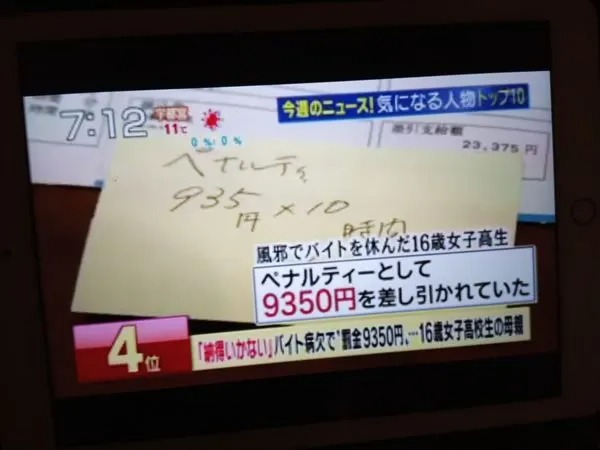 今週のニュース!気になる人物トップ10
7:12
宇都宮
11℃
0%|0%
時間
差引支給額
23,375 円
ペナルティ
935円×10時間
風邪でバイトを休んだ16歳女子高生
ペナルティーとして
9350円を差し引かれていた
4位
「納得いかない」バイト病欠で"罰金9350円、…16歳女子高校生の母親